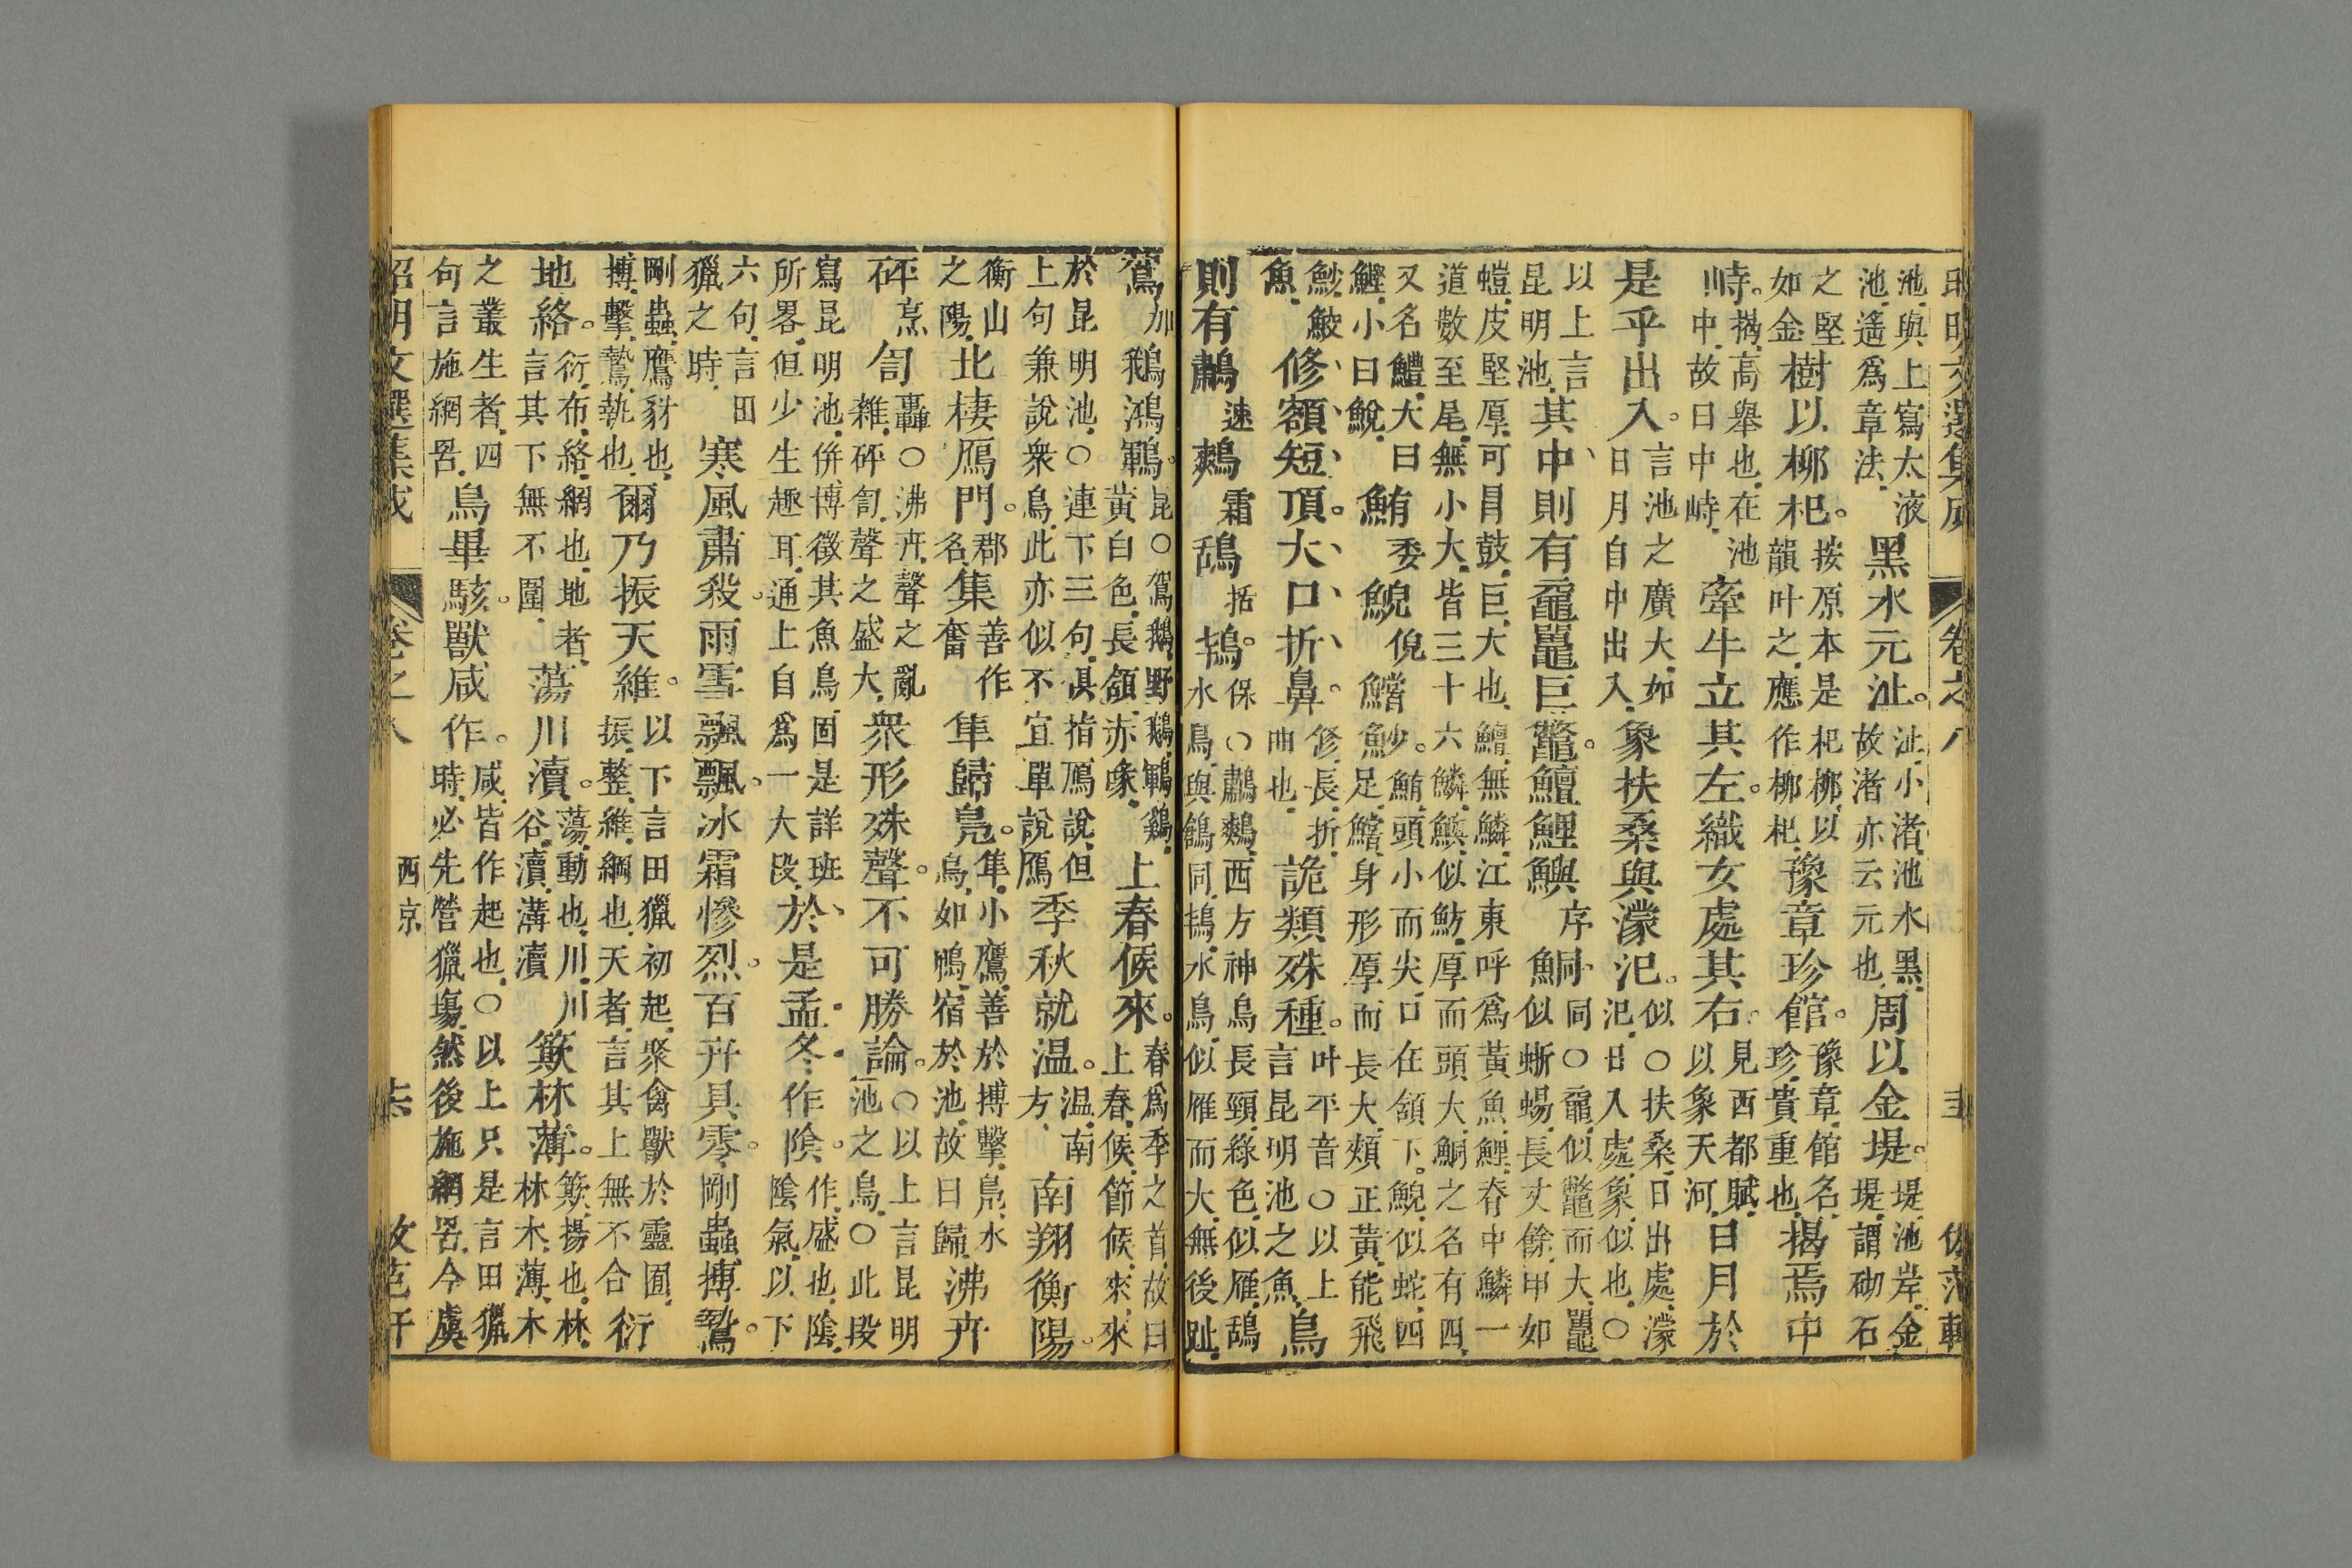 昭明文選集成 卷之八
池與上寫太液池遙爲章法黑水元沚沚小渚池水黑故渚亦云元也周以金堤堤池岸金堤謂砌石
之堅如金樹以柳杞按原本是杞柳以韻叶之應作柳杞豫章珍館豫章館名珍貴重也揭焉中
峙揭高舉也在池中故曰中峙牽牛立其左織女處其右見西都賦以象天河日月於
是乎出入言池之廣大如日月自中出入象扶桑與濛汜似○扶桑日出處濛汜日入處象似也○
以上言昆明池其中則有黿鼉巨鱉鱣鯉鱮序鮦同○黿似鱉而大鼉似蜥蜴長丈餘甲如
鎧皮堅厚可冒鼓巨大也鱣無鱗江東呼爲黃魚鯉脊中鱗一道數至尾無小大皆三十六鱗鱮似魴厚而頭大鮦之名有四
又名鱧大曰鰹小曰鮵鮪委鯢倪鱨魦鮪頭小而尖口在頷下鯢似蛇四足鱨身形厚而長大頰正黃能飛
魦鮫魚修額短項大口折鼻修長折曲也詭類殊種叶平音○以上言昆明池之魚鳥
則有鷫速鷞霜鴰括鴇保○鷫鷞西方神鳥長頸綠色似雁鴰水鳥與鶬同鴇水鳥似雁而大無後趾
鴐加鵝鴻鶤昆○鴐鵝野鵝鶤雞黃白色長頷赤喙上春候來春爲季之首故曰上春候節候來來
於昆明池○連下三句俱指鴈說但上句兼說衆鳥此亦似不宜單說鴈季秋就温温南方南翔衡陽
衡山之陽北棲鴈門郡名集善作奮隼歸鳧隼小鷹善於搏擊鳧水鳥如鴨宿於池故曰歸沸卉
砰烹訇轟○沸卉聲之亂雜砰訇聲之盛大衆形殊聲不可勝論○以上言昆明池之鳥○此段
寫昆明池併博徵其魚鳥固是詳班所畧但少生趣耳通上自爲一大段於是孟冬作陰作盛也陰陰氣以下
六句言田獵之時寒風肅殺雨雪飄飄冰霜慘烈百卉具零剛蟲搏鷙
剛蟲鷹豺也搏擊鷙執也爾乃振天維以下言田獵初起聚禽獸於靈囿振整維綱也天者言其上無不合衍
地絡衍布絡網也地者言其下無不圍蕩川瀆蕩動也川川谷瀆溝瀆簸林薄簸揚也林林木薄木
之叢生者四句言施網罟鳥畢駭獸咸作咸皆作起也○以上只是言田獵時必先營獵場然後施網罟今虞
昭明文選集成 卷之八 西京